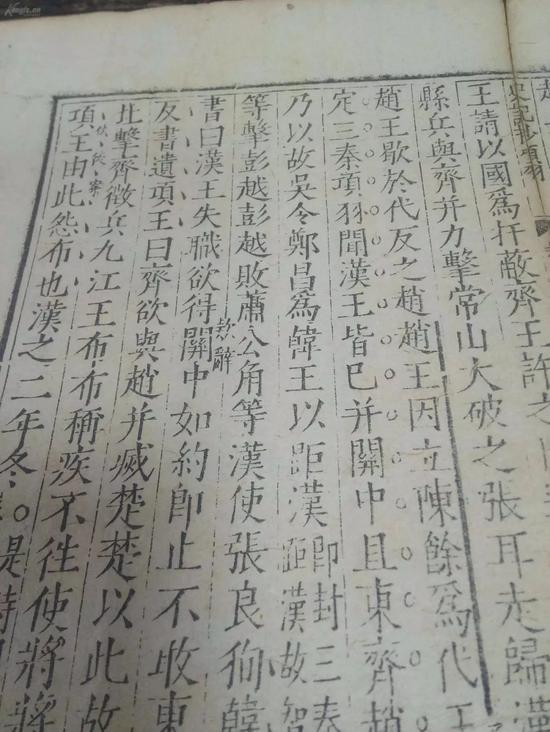 Kongfz.cn
史記抄項羽
王請以國爲扞蔽齊王許之
縣兵與齊并力擊常山大破之張耳走歸漢
趙王歇於代反之趙趙王因立陳餘爲代王
定三秦項羽聞漢王皆已并關中且東齊趙
乃以故吳令鄭昌爲韓王以距漢
即封三秦
距漢故智
等擊彭越彭越敗蕭公角等漢使張良徇韓
欺辭
書曰漢王失職欲得關中如約即止不敢東
反書遺項王曰齊欲與趙并滅楚楚以此故
北擊齊徵兵九江王布布稱疾不往使將將
伏後案
項王由此怨布也漢之二年冬
是時